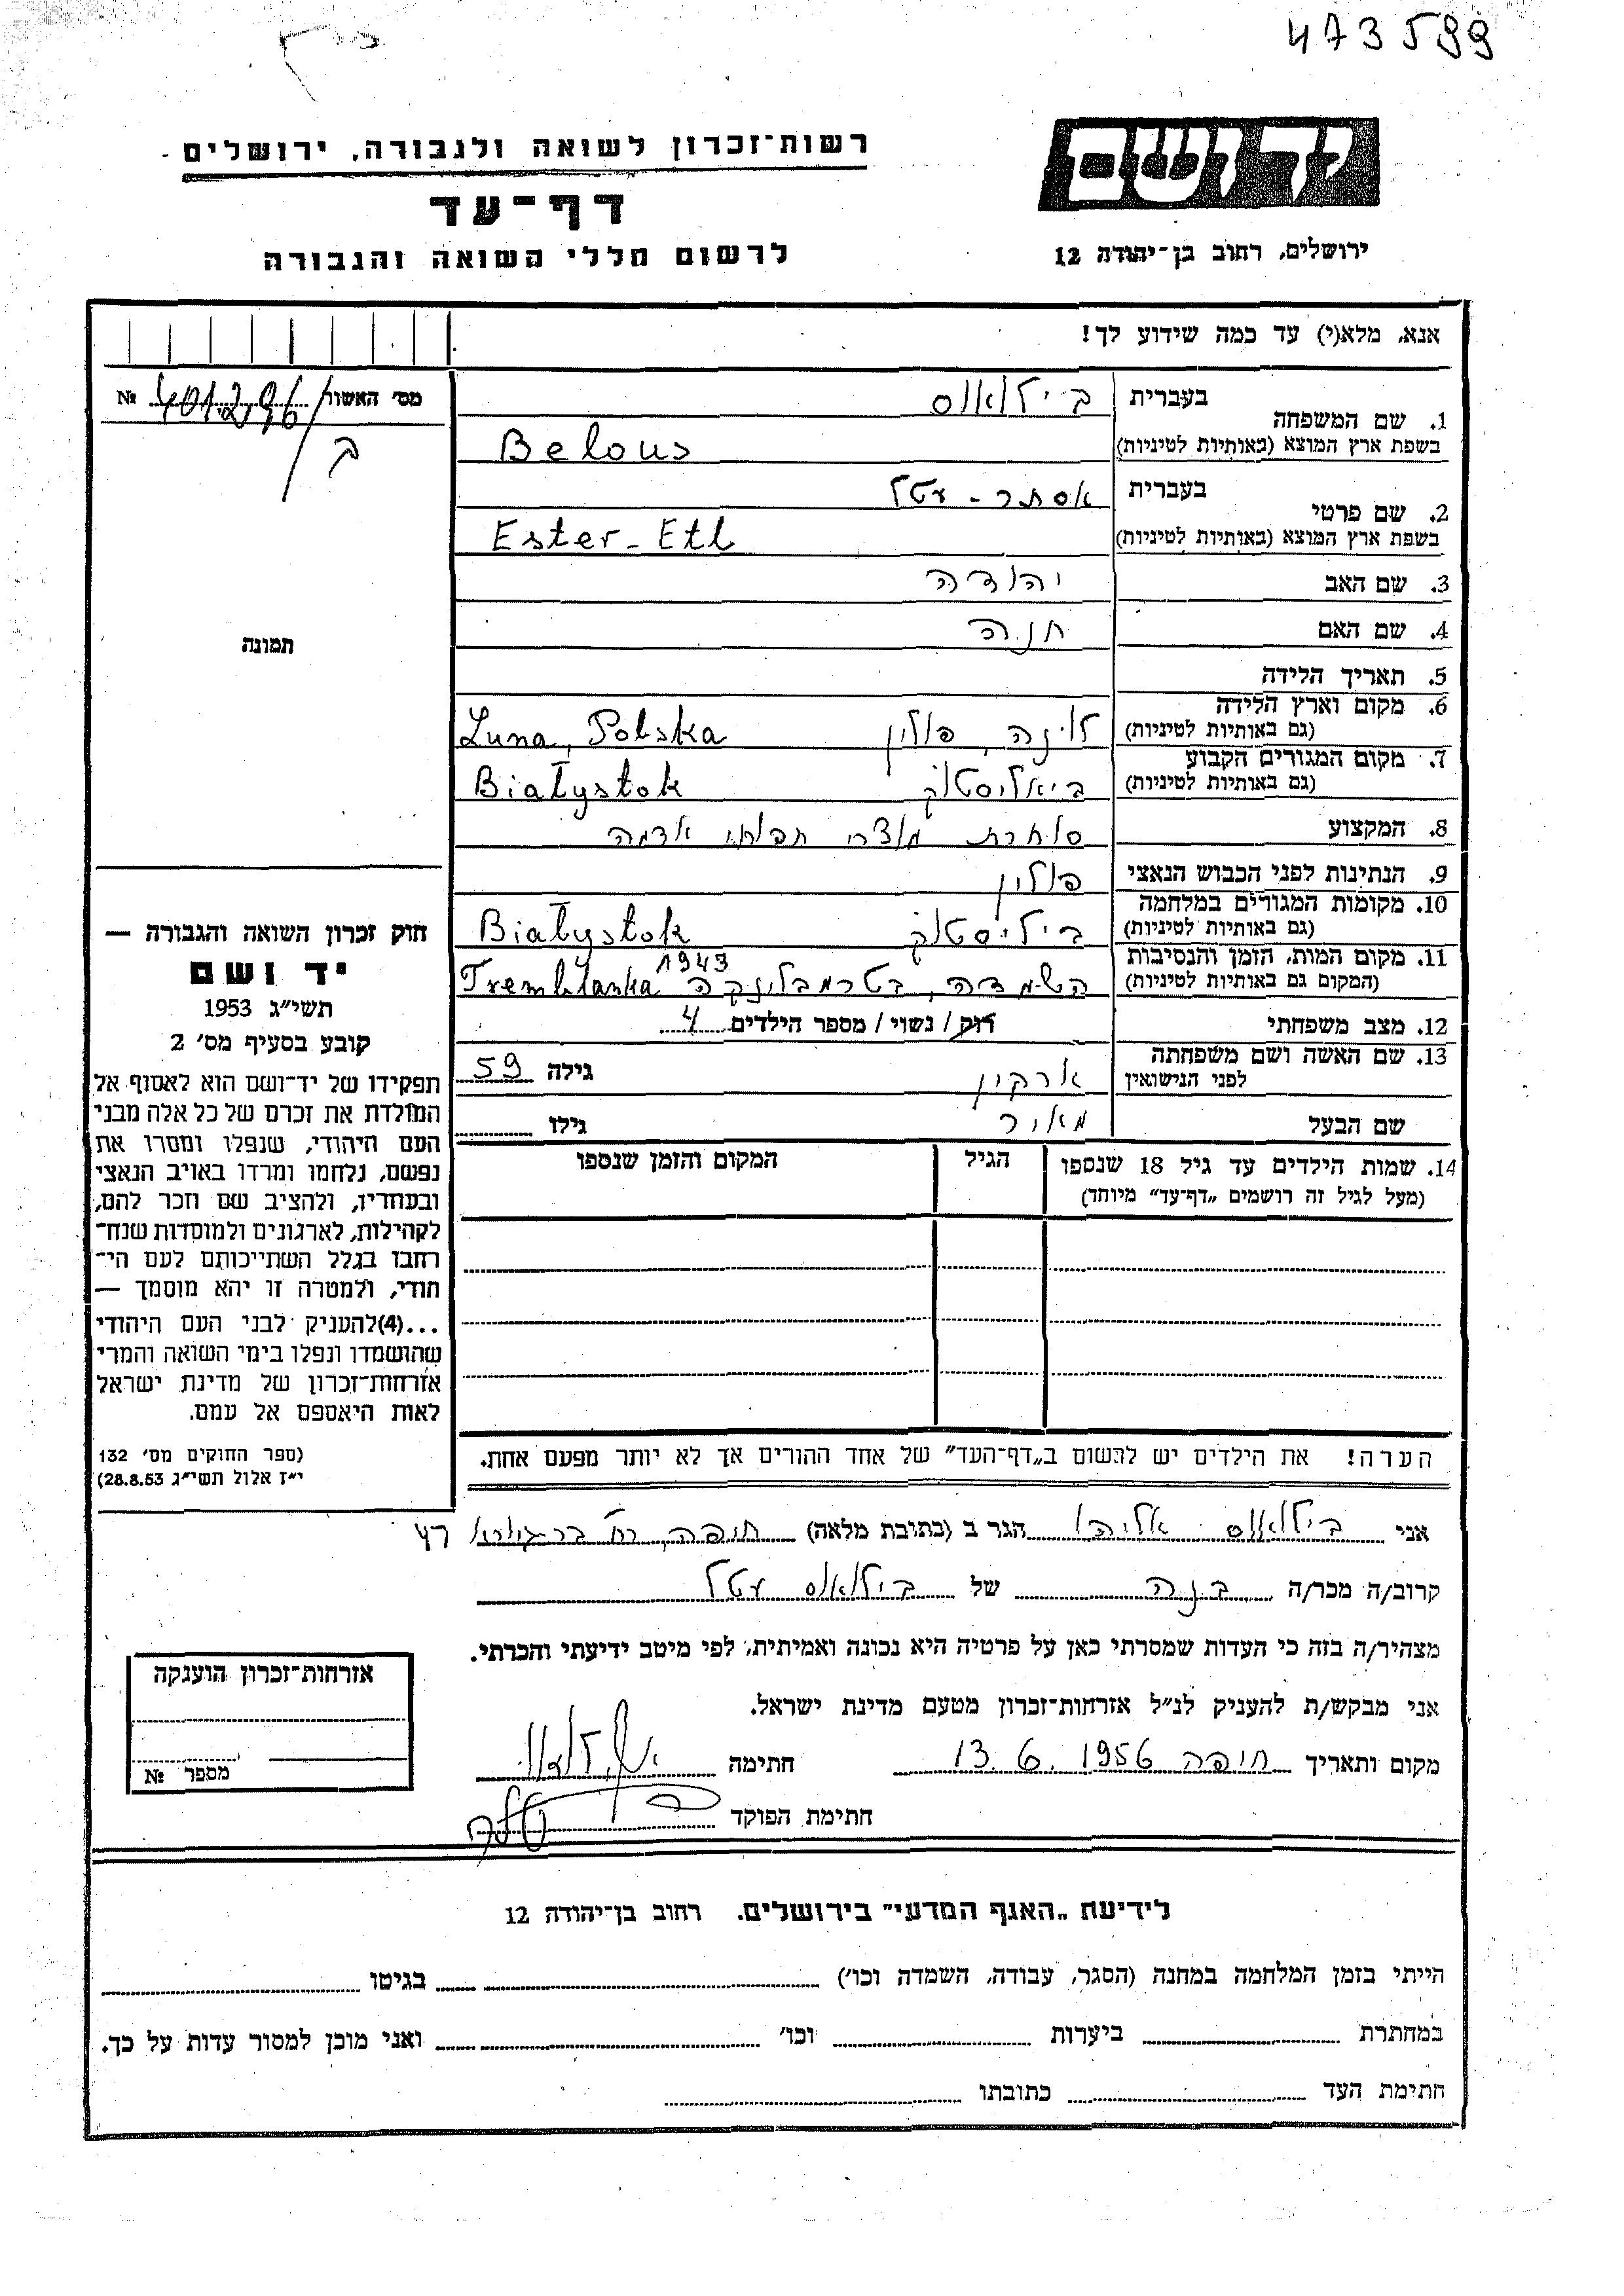 473599
יד ושם
רשות־זכרון לשואה ולגבורה, ירושלים
דף־עד
לרשום חללי השואה והגבורה
ירושלים, רחוב בן־יהודה 12
אנא, מלא(י) עד כמה שידוע לך!
מס' האשור № 401296
ב/
תמונה
1. שם המשפחה
בעברית בילאוס
בשפת ארץ המוצא (באותיות לטיניות) Belous
2. שם פרטי
בעברית אסתר - עטל
בשפת ארץ המוצא (באותיות לטיניות) Ester - Etl
3. שם האב יהודה
4. שם האם חנה
5. תאריך הלידה
6. מקום וארץ הלידה
(גם באותיות לטיניות) לונה, פולין Luna, Polska
7. מקום המגורים הקבוע
(גם באותיות לטיניות) ביאליסטוק Białystok
8. המקצוע סוחרת מוצרי חפלאי אדמה
9. הנתינות לפני הכבוש הנאצי פולין
10. מקומות המגורים במלחמה
(גם באותיות לטיניות) ביליסטוק Białystok
11. מקום המות, הזמן והנסיבות
(המקום גם באותיות לטיניות) השמדה, בטרמבלינקה Tremblanka 1943
12. מצב משפחתי רוק / נשוי / מספר הילדים 4
13. שם האשה ושם משפחתה
לפני הנישואין ארקין גילה 59
שם הבעל מאיר גילו
14. שמות הילדים עד גיל 18 שנספו
(מעל לגיל זה רושמים „דף־עד" מיוחד)
הגיל
המקום והזמן שנספו
הערה! את הילדים יש לרשום ב„דף־העד" של אחד ההורים אך לא יותר מפעם אחת.
חוק זכרון השואה והגבורה —
יד ושם
תשי״ג 1953
קובע בסעיף מס' 2
תפקידו של יד־ושם הוא לאסוף אל
המולדת את זכרם של כל אלה מבני
העם היהודי, שנפלו ומסרו את
נפשם, נלחמו ומרדו באויב הנאצי
ובעוזריו, ולהציב שם וזכר להם,
לקהילות, לארגונים ולמוסדות שנח־
רחבו בגלל השתייכותם לעם הי־
הודי, ולמטרה זו יהא מוסמך —
...(4)להעניק לבני העם היהודי
שהושמדו ונפלו בימי השואה והמרי
אזרחות־זכרון של מדינת ישראל
לאות היאספם אל עמם.
(ספר החוקים מס' 132
י״ז אלול תשי״ג 28.8.53)
אני בילאוס אליהו הגר ב (כתובת מלאה) חיפה, רח' בר גיורא 47
קרוב/ה מכר/ה בנה של בילאוס עטל
מצהיר/ה בזה כי העדות שמסרתי כאן על פרטיה היא נכונה ואמיתית, לפי מיטב ידיעתי והכרתי.
אני מבקש/ת להעניק לנ״ל אזרחות־זכרון מטעם מדינת ישראל.
מקום ותאריך חיפה 13.6.1956 חתימה
חתימת הפוקד
אזרחות־זכרון הוענקה
מספר №
לידיעת „האגף המדעי" בירושלים. רחוב בן־יהודה 12
הייתי בזמן המלחמה במחנה (הסגר, עבודה, השמדה וכו') בגיטו
במחתרת ביערות וכו' ואני מוכן למסור עדות על כך.
חתימת העד כתובתו